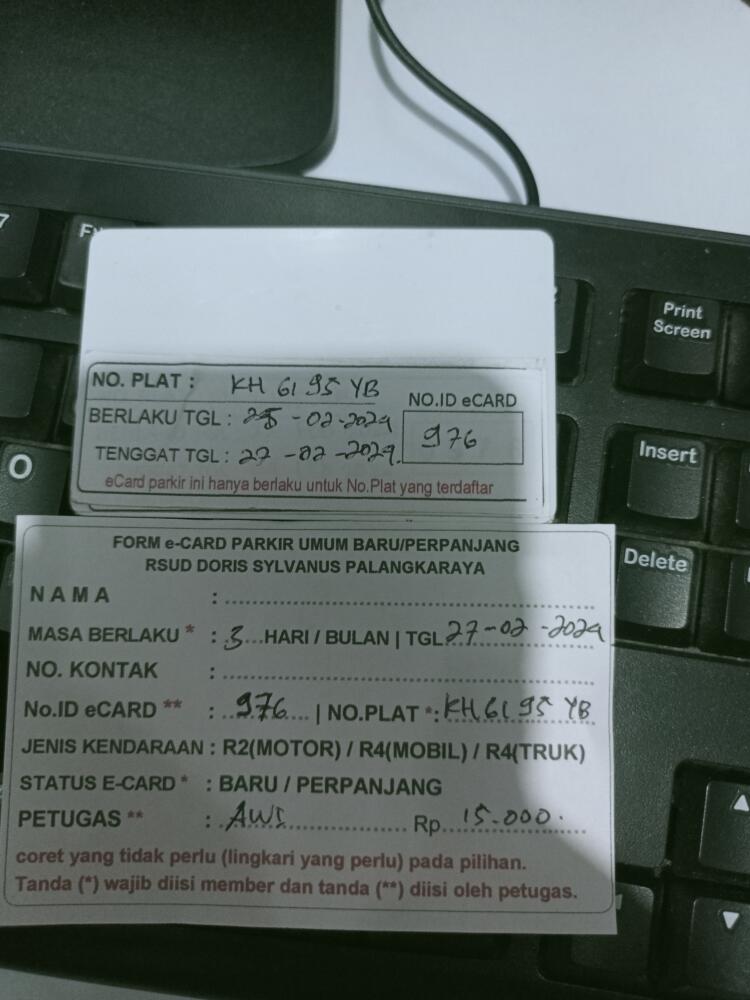 7
F
Print
Screen
NO. PLAT : KH 6195 YB
BERLAKU TGL : 25 -02-2024
NO.ID eCARD
976
TENGGAT TGL : 27 -02 -2024.
eCard parkir ini hanya berlaku untuk No.Plat yang terdaftar
Insert
O
Delete
FORM e-CARD PARKIR UMUM BARU/PERPANJANG
RSUD DORIS SYLVANUS PALANGKARAYA
N A M A :
MASA BERLAKU * : 3 HARI / BULAN | TGL 27-02-2024
NO. KONTAK :
No.ID eCARD ** : 976 | NO.PLAT *: KH 6195 YB
JENIS KENDARAAN : R2(MOTOR) / R4(MOBIL) / R4(TRUK)
STATUS E-CARD * : BARU / PERPANJANG
PETUGAS ** : AWI Rp. 15.000.
coret yang tidak perlu (lingkari yang perlu) pada pilihan.
Tanda (*) wajib diisi member dan tanda (**) diisi oleh petugas.